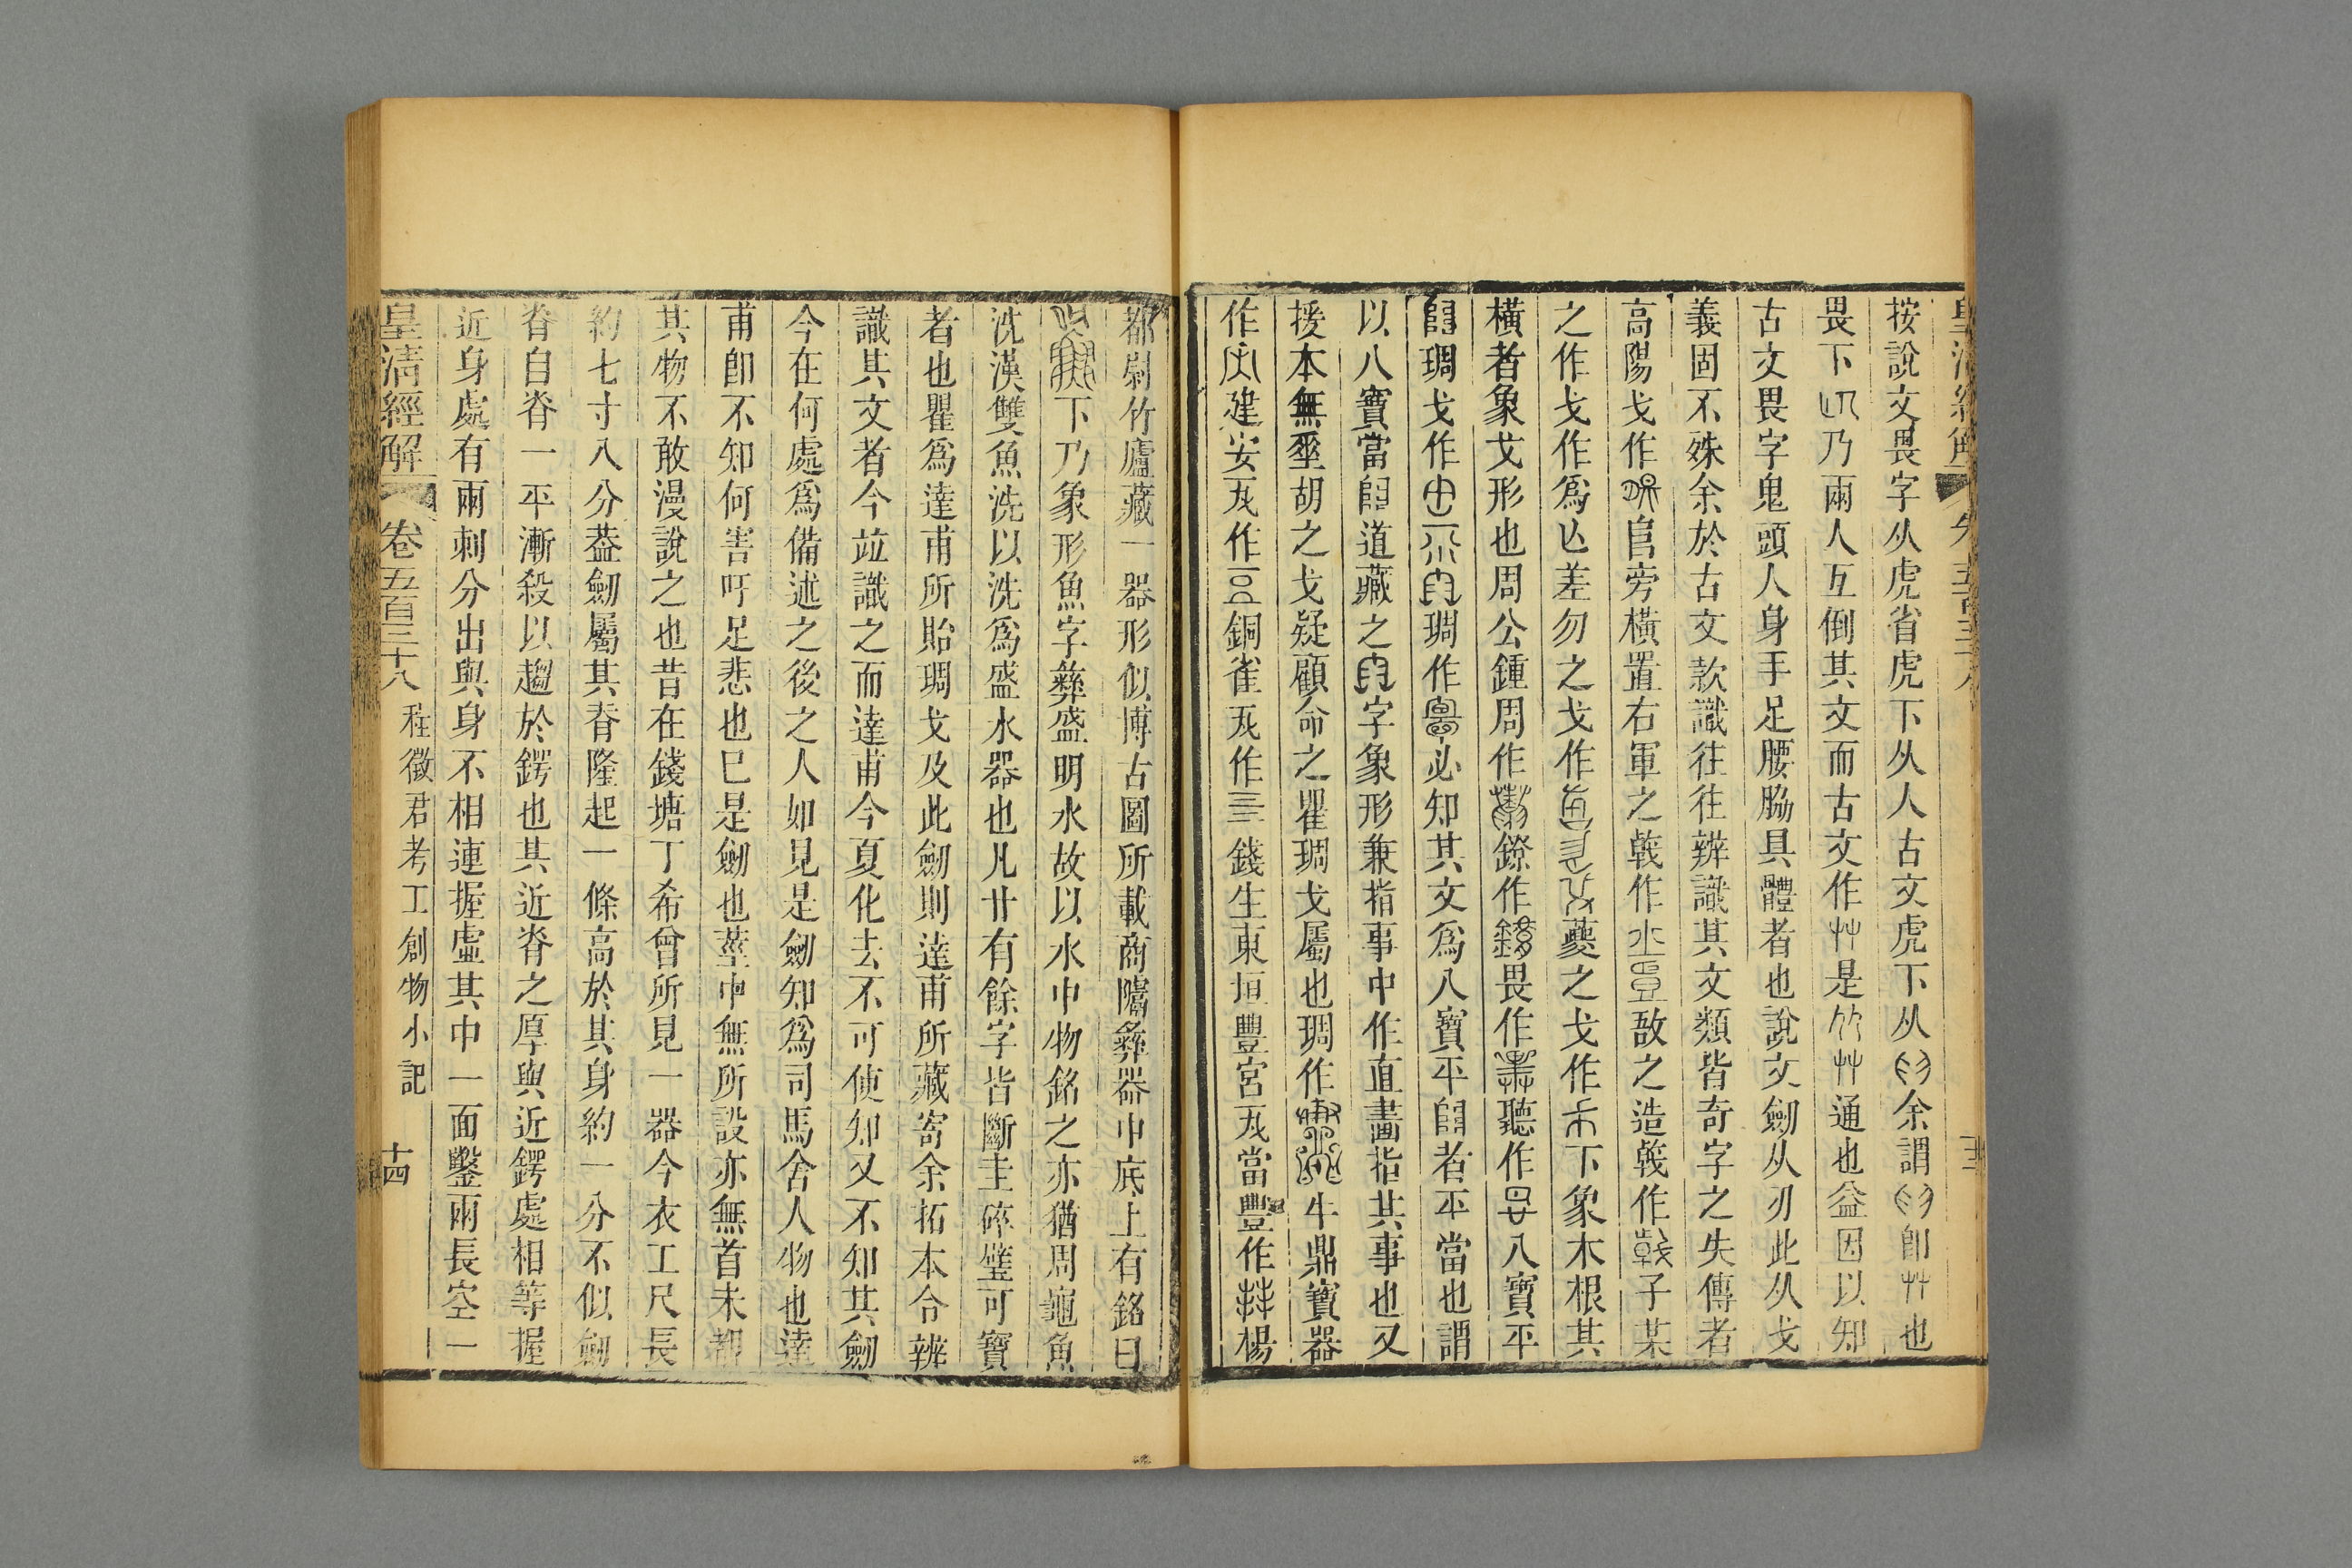 皇清經解 卷五百三十八
按說文畏字从虎省虎下从人古文虎下从余謂卽艸也
畏下乃兩人互倒其文而古文作艸是竹艸通也益因以知
古文畏字鬼頭人身手足腰脇具體者也說文劒从刃此从戈
義固不殊余於古文款識往往辨識其文類皆奇字之失傳者
高陽戈作𨸏旁橫置右軍之戟作敔之造戟作子某
之作戈作爲亾差勿之戈作夔之戈作下象木根其
橫者象戈形也周公鍾周作鐐作畏作聽作八寶平
琱戈作琱作必知其文爲八寶平者平當也謂
以八寶當道藏之字象形兼指事中作直畫指其事也又
援本無垩胡之戈疑顧命之瞿琱戈屬也琱作牛鼎寶器
作建安瓦作銅雀瓦作錢生東垣豐宮瓦當豐作楊
都尉竹廬藏一器形似博古圖所載商𨼆彝器中底上有銘曰
下乃象形魚字彝盛明水故以水中物銘之亦猶周龜魚
洗漢雙魚洗以洗爲盛水器也凡廿有餘字皆斷圭碎璧可寶
者也瞿爲達甫所貽琱戈及此劒則達甫所藏寄余拓本令辨
識其文者今竝識之而達甫今夏化去不可使知又不知其劒
今在何處爲備述之後之人如見是劒知爲司馬舍人物也達
甫卽不知何害吁足悲也已是劒也莖中無所設亦無首未都
其物不敢漫說之也昔在錢塘丁希曾所見一器今衣工尺長
約七寸八分葢劒屬其脊隆起一條高於其身約一分不似劒
脊自脊一平漸殺以趨於鍔也其近脊之厚與近鍔處相等握
近身處有兩刺分出與身不相連握虛其中一面鑿兩長空一
皇清經解 卷五百三十八 程徵君考工創物小記 十四